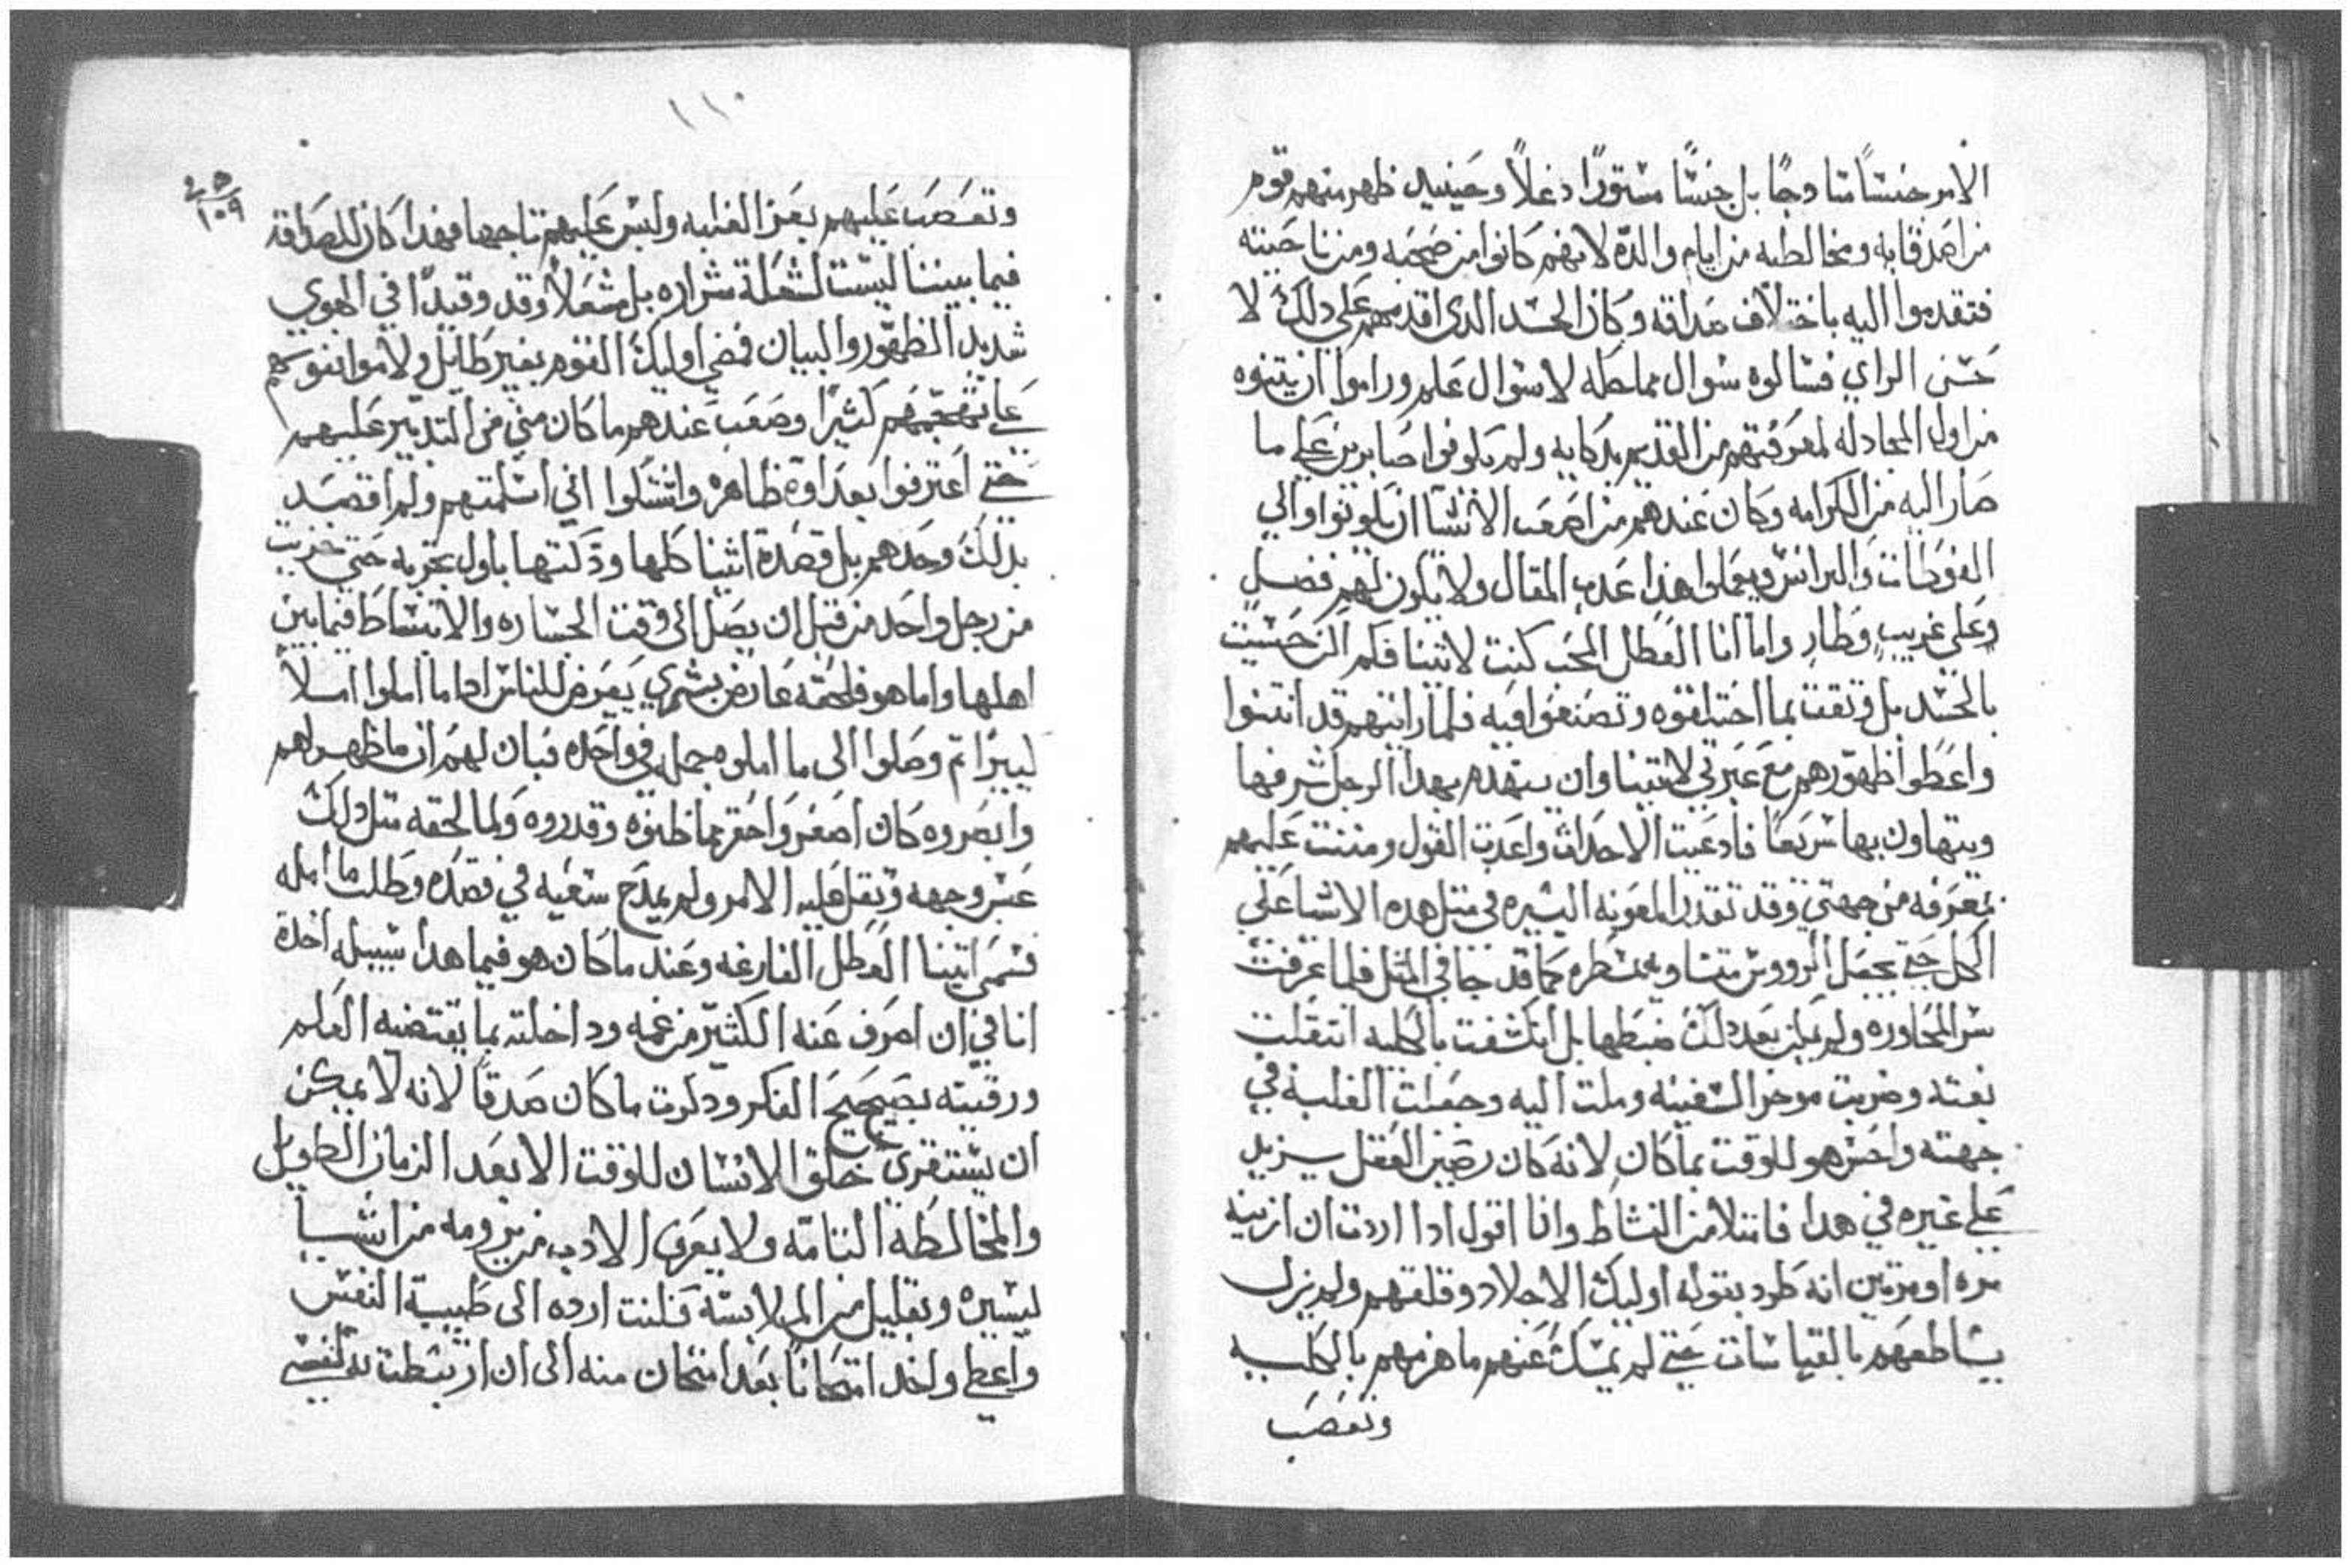 الامر جنسًا سادجًا بل جنسًا مستورًا دغلاً وحينيد ظهر منهم قوم
من اصدقايه ومخالطيه من ايام والده لانهم كانوا من ضيعته ومن ناحيته
فتقدموا اليه باختلاف صداقه وكان الحسد الدى اقدمهم على دلك لا
حسن الراي فسالوه سوال مماطله لا سوال علم وراموا ان يثنوه
من اول المجادله لمعرفتهم من القديم بدكايه ولم يكونوا صابرين على ما
صار اليه من الكرامه وكان عندهم من اصعب الاشيا ان يكونوا اوالي
الفوطات والبرانس ويعملوا هذا عدب المقال ولا يكون لهم فضل
وعلى غريب وطار واما انا العطل المحب كنت لاثينا فلم اكن حسيت
بالحسد بل وثقت بما اختلقوه وتصنعوا فيه فلما رايتهم قد انثنوا
واعطوا ظهورهم مع غيرتي لاثينا وان يتهدم بهدا الرجل شرفها
ويتهاون بها سريعًا فادعيت الاحداث واعدت القول ومننت عليهم
بمعرفه من جهتي وقد تقدر المعونه اليسيره في مثل هده الاشيا على
الكل حتى تحصل الرووس متساويه بمسطره كما قد جا في المثل فلما عرفت
سر المحاوره ولم يمكن بعد دلك ضبطها بل انكشفت بالكليه انتقلت
بغته وضربت موخر السفينه وملت اليه وجعلت الغلبة في
جهته واحس هو للوقت بما كان لانه كان رصين العقل يزيد
على غيره في هدا فامتلا من النشاط وانا اقول ادا اردت ان ازينه
مره او مرتين انه طرد بقوله اوليك الاجلاد وقلقهم ولم يزل
يشاطعهم بالقياسات حتى لم يمسك عنهم ما هزمهم بالكليه
وتعصب
١١٠
١٠٩
وتعصب عليهم بعز الغلبه ولبس عليهم تاجها فهدا كان للصداقة
فيما بيننا ليست لشعلة شراره بل مشعلاً وقد وقيدًا في الهوي
شديد الظهور والبيان فمضى اوليك القوم بغير طايل ولاموا نفوسهم
على تهجمهم كثيرًا وصعب عندهم ما كان مني من التدبير عليهم
حتى اعترفوا بعداوة ظاهره واشتكوا اني اسلمتهم ولم اقصد
بدلك وحدهم بل قصدة اثينا كلها ودكتها باول تجربه حتى خزيت
من رجل واحد من قبل ان يصل الى وقت الجساره والانبساط فيما بين
اهلها واما هو فلحقه عارض بشري يعرض للناس اداما املوا املاً
ليبرًا ثم وصلوا الى ما املوه جمله في واحده فبان لهم ان ما ظهر لهم
وابصروه كان اصغر واحقر مما ظنوه وقدروه ولما لحقه مثل دلك
عبس وجهه وثقل عليه الامر ولم يمدح سعيه في قصده وطلب ما امله
فسمى اثينا العطل الفارغه وعند ما كان هو فيما هدا سبيله اخدة
انا في ان اصرف عنه الكثير من غمه وداخلته بما يقتضيه العلم
ورقيته بصحيح الفكر ودكرت ما كان صدقًا لانه لا يمكن
ان يستقرى خلق الانسان للوقت الا بعد الزمان الطويل
والمخالطة التامه ولا يعرى الادب من يرومه من اشيا
يسيره وبقليل من الملابسة فنلنت ارده الى طيبة النفس
واعطى واخد امتحانًا بعد امتحان منه الى ان ارتبطت به لنفسي